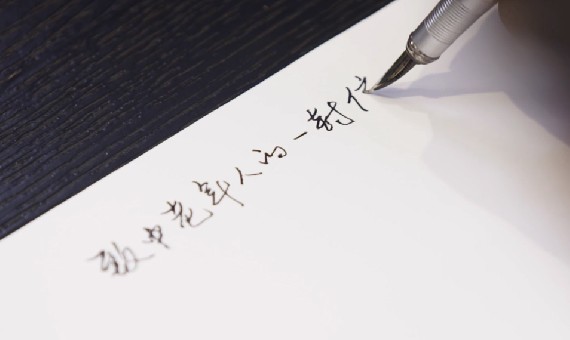 致中老年人的一封信